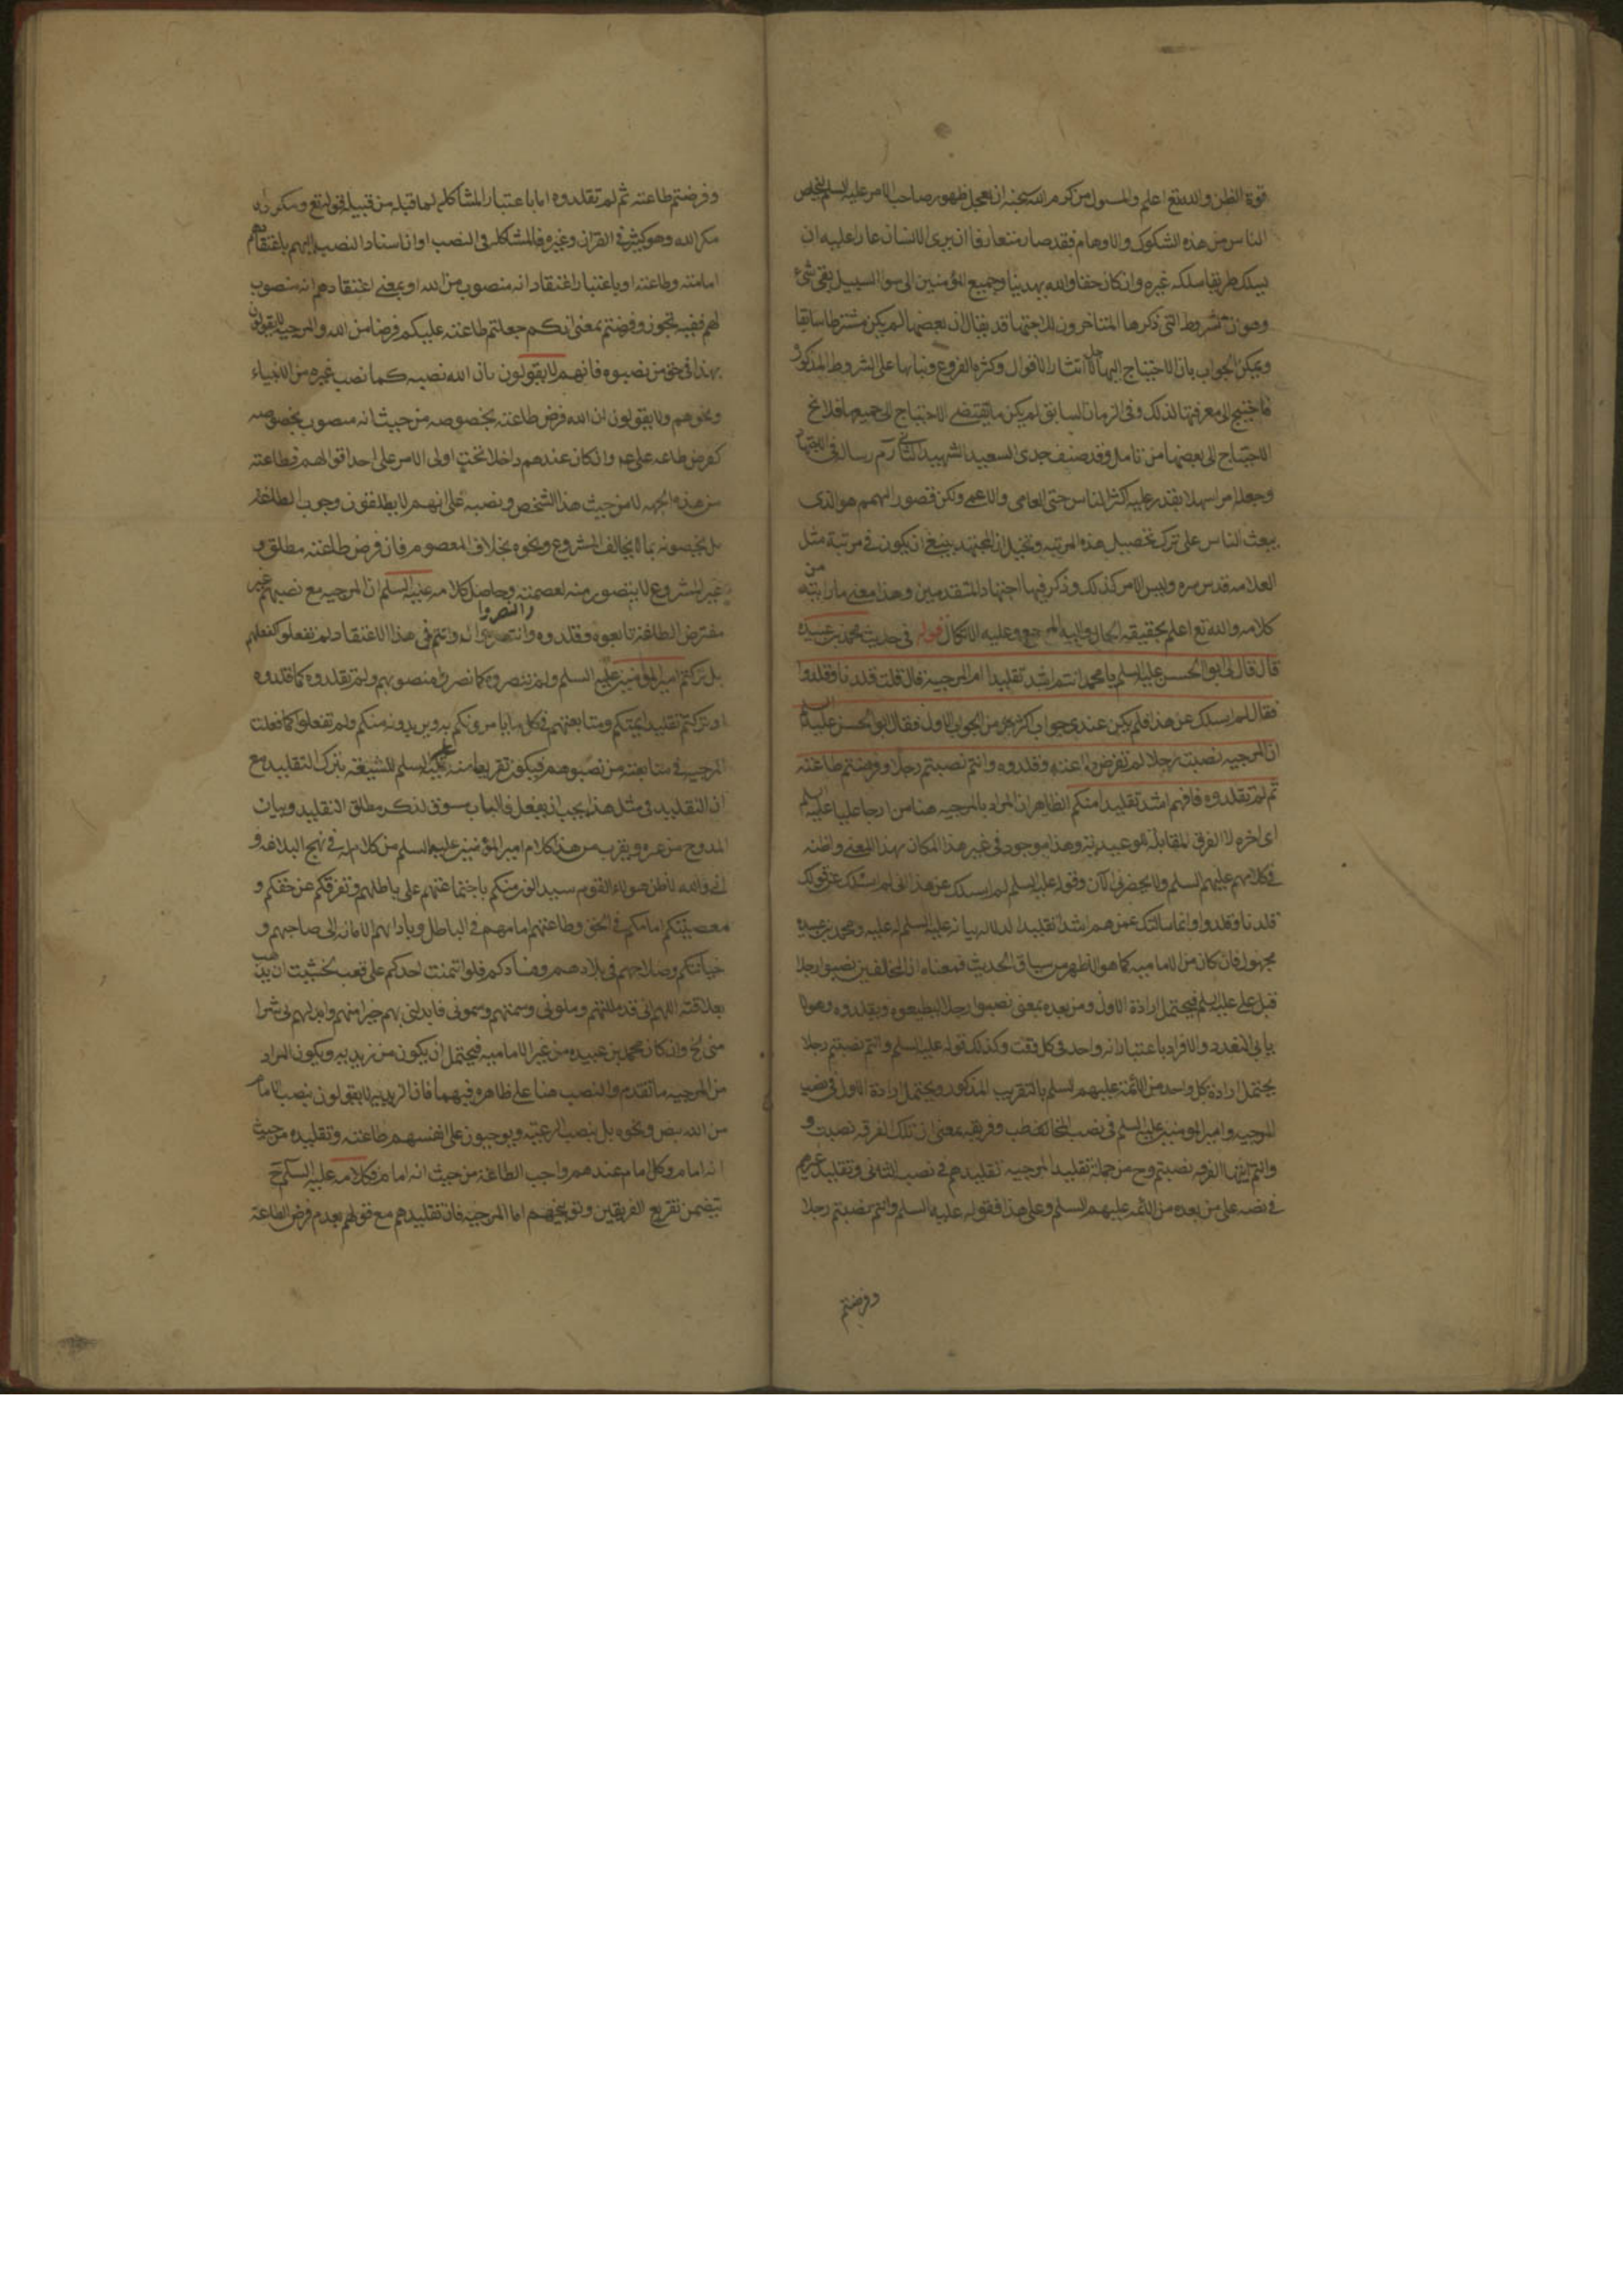 قوة الظن والله تع اعلم والمسئول من كرم الله سبحنه ان يعجل ظهور صاحب الامر عليه السلم ليخلص
الناس من هذه الشكوك والاوهام فقد صار متعارفا ان يرى الانسان عارا عليه ان
يسلك طريقا سلكه غيره وان كان حقا والله يهدينا وجميع المؤمنين الى سوا السبيل بقى شىء
وهو ان شروط التى ذكرها المتاخرون للاجتهاد قد يقال ان بعضها لم يكن مشترطا سابقا
ويمكن الجواب بان الاحتياج اليها لاجل انتشار الاقوال وكثرة الفروع وبنائها على الشروط المذكورة
فاحتيج الى معرفتها لذلك وفى الزمان السابق لم يكن ما يقتضى الاحتياج الى جميعها فلا يخ
الاحتياج الى بعضها من تامل وقد صنف جدى السعيد الشهيد الثانى ره رسالة فى الاجتهاد
وجعله امرا سهلا يقدر عليه اكثر الناس حتى العامى والاعمى ولكن قصور الهمم هو الذى
يبعث الناس على ترك تحصيل هذه المرتبة وتخيل ان المجتهد ينبغى ان يكون فى مرتبة مثل
العلامه قدس سره وليس الامر كذلك وذكر فيها اجتهاد المتقدمين وهذا معنى ما رايته من
كلامه والله تع اعلم بحقيقة الحال واليه المرجع وعليه الاتكال قوله فى حديث محمد بن عبيده
قال قال لى ابو الحسن عليه السلم يا محمد انتم اشد تقليدا ام المرجية قال قلت قلدنا وقلدوا
فقال لم اسئلك عن هذا فلم يكن عندى جواب اكثر من الجواب الاول فقال ابو الحسن عليه السلم
ان المرجية نصبت رجلا لم تفرض طاعته وقلدوه وانتم نصبتم رجلا وفرضتم طاعته
ثم لم تقلدوه فهم اشد تقليدا منكم الظاهر ان المراد بالمرجية هنا من ارجا عليا عليه السلم
اى اخره لا الفرق المقابلة للوعيدية وهذا موجود فى غير هذا المكان بهذا المعنى واظنه
فى كلامهم عليهم السلم ولا يحضرنى الان وقوله عليه السلم لم اسئلك عن هذا اى لم اسئلك عن قولك
قلدنا وقلدوا وانما سالتك عمن هم اشد تقليدا لدلالة بيانه عليه السلم له عليه ومحمد بن عبيده
مجهول فان كان من الاماميه كما هو الاظهر من سياق الحديث فمعناه ان المخالفين نصبوا رجلا
قبل على عليه السلم فيحتمل ارادة الاول ومن بعده بمعنى نصبوا رجلا ليطيعوه ويقلدوه وهو لا
يابى التعدد والافراد باعتبار انه واحد فى كل وقت وكذلك قوله عليه السلم وانتم نصبتم رجلا
يحتمل ارادة كل واحد من الائمة عليهم السلم بالتقريب المذكور ويحتمل ارادة الاول فى نصب
المرجية وامير المومنين عليه السلم فى نصب المخاطب وفريقه بمعنى ان تلك الفرقة نصبت و
وانتم ايتها الفرقة نصبتم وح من جملة تقليد المرجية تقليدهم فى نصب الثانى وتقليد غيرهم
فى نصه على من بعده من الائمة عليهم السلم وعلى هذا فقوله عليه السلم وانتم نصبتم رجلا
وفرضتم
وفرضتم طاعته ثم لم تقلدوه اما باعتبار المشاكلة لما قبله من قبيل قوله تع ومكروا و
مكر الله وهو كثير فى القران وغيره فالمشاكلة فى النصب او ان اسناد النصب اليهم باعتقادهم
امامته وطاعته او باعتبار اعتقاد انه منصوب من الله او بمعنى اعتقادهم انه منصوب
لهم ففيه تجوز وفرضتم بمعنى انكم جعلتم طاعته عليكم فرضا من الله والمرجية لا يقولون
بهذا فى حق من نصبوه فانهم لا يقولون بان الله نصبه كما نصب غيره من الانبياء
ونحوهم ولا يقولون ان الله فرض طاعته بخصوصه من حيث انه منصوب بخصوصه
كفرض طاعة على ع وان كان عندهم داخلا تحت اولى الامر على احد اقوالهم فطاعته
من هذه الجهة لا من حيث هذا الشخص ونصبه على انهم لا يطلقون وجوب الطاعة
بل يخصونه بما لا يخالف المشروع ونحوه بخلاف المعصوم فان فرض طاعته مطلق و
غير المشروع لا يتصور منه لعصمته وحاصل كلامه عليه السلم ان المرجية مع نصبهم غير
مفترض الطاعة تابعوه وقلدوه وانتصروا له وانتم فى هذا الاعتقاد لم تفعلوا كفعلهم
بل تركتم امير المؤمنين عليه السلم ولم تنصروه كما نصروا منصوبهم ولم تقلدوه كما قلدوه
او تركتم تقليد ائمتكم ومتابعتهم فى كل ما يامرونكم به ويريدونه منكم ولم تفعلوا كما فعلت
المرجية فى متابعة من نصبوهم فيكون تقريعا منه عليه السلم للشيعة بترك التقليد مع
ان التقليد فى مثل هذا يجب ان يفعل فالباب مسوق لذكر مطلق التقليد وبيان
الممدوح من غيره ويقرب من هذا كلام امير المؤمنين عليه السلم من كلام له فى نهج البلاغه و
انى والله لاظن هولاء القوم سيدالون منكم باجتماعهم على باطلهم وتفرقكم عن حقكم و
معصيتكم امامكم فى الحق وطاعتهم امامهم فى الباطل وباداىهم الامانة الى صاحبهم و
خيانتكم وصلاحهم فى بلادهم وفسادكم فلو ائتمنت احدكم على قعب لخشيت ان يذهب
بعلاقته اللهم انى قد مللتهم وملونى وسئمتهم وسئمونى فابدلنى بهم خيرا منهم وابدلهم بى شرا
منى الخ وان كان محمد بن عبيده من غير الاماميه فيحتمل ان يكون من زيديه ويكون المراد
من المرجية ما تقدم والنصب هنا على ظاهره فيهما فان الزيديه لا يقولون بنصب الامام
من الله بنص ونحوه بل بنصب الرعية ويوجبون على انفسهم طاعته وتقليده من حيث
انه امام وكل امام عندهم واجب الطاعة من حيث انه امام فكلامه عليه السلم ح
يتضمن تقريع الفريقين وتوبيخهم اما المرجية فان تقليدهم مع قولهم بعدم فرض الطاعة